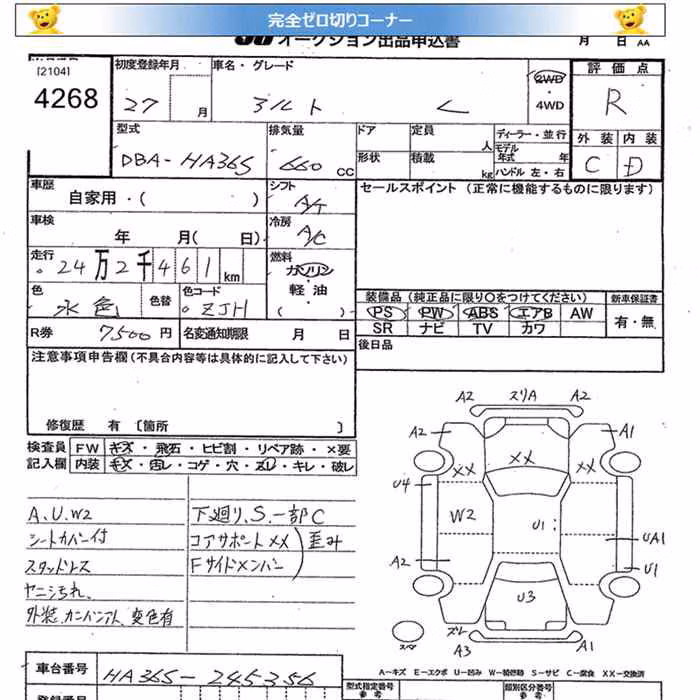 完全ゼロ切りコーナー
オークション出品申込書 月 日 AA
[2104]
4268
初度登録年月
27 月
車名・グレード
アルト L
2WD
・
4WD
評価点
R
型式
DBA-HA36S
排気量
660 CC
ドア
定員 人
形状
積載 kg
ディーラー・並行
モデル年式 年
ハンドル 左・右
外装 内装
C D
車歴
自家用・( )
シフト
A/T
セールスポイント (正常に機能するものに限ります)
車検
年 月( 日)
冷房
A/C
走行
24万2千461km
燃料
ガソリン
軽・油
色
水色
色替
色コード
ZJH
装備品(純正品に限り○をつけてください)
新車保証書
PS PW ABS エアB AW
SR ナビ TV カワ
有・無
R券 7500円 名変通知期限 月 日
後日品
注意事項申告欄(不具合内容等は具体的に記入して下さい)
修復歴 有 [箇所 ]
検査員
記入欄
FW キズ・飛石・ヒビ割・リペア跡・×要
内装 キズ・汚レ・コゲ・穴・スレ・キレ・破レ
A、U、W2
シートカバー付
スタッドレス
ヤニシミ汚れ、
下廻り、S、一部C
コアサポートXX
Fサイドメンバー
歪み
A2 スリA A2
A2 A1
XX XX XX
U4
W2 U1
A2 UA1
U1
U3
スレ
A3 A1
スペア
車台番号
HA36S-245356
A-キズ E-エクボ U-凹み W-補修跡 S-サビ C-腐食 XX-交換済
型式指定番号
参考
類別区分番号
参考
登録番号